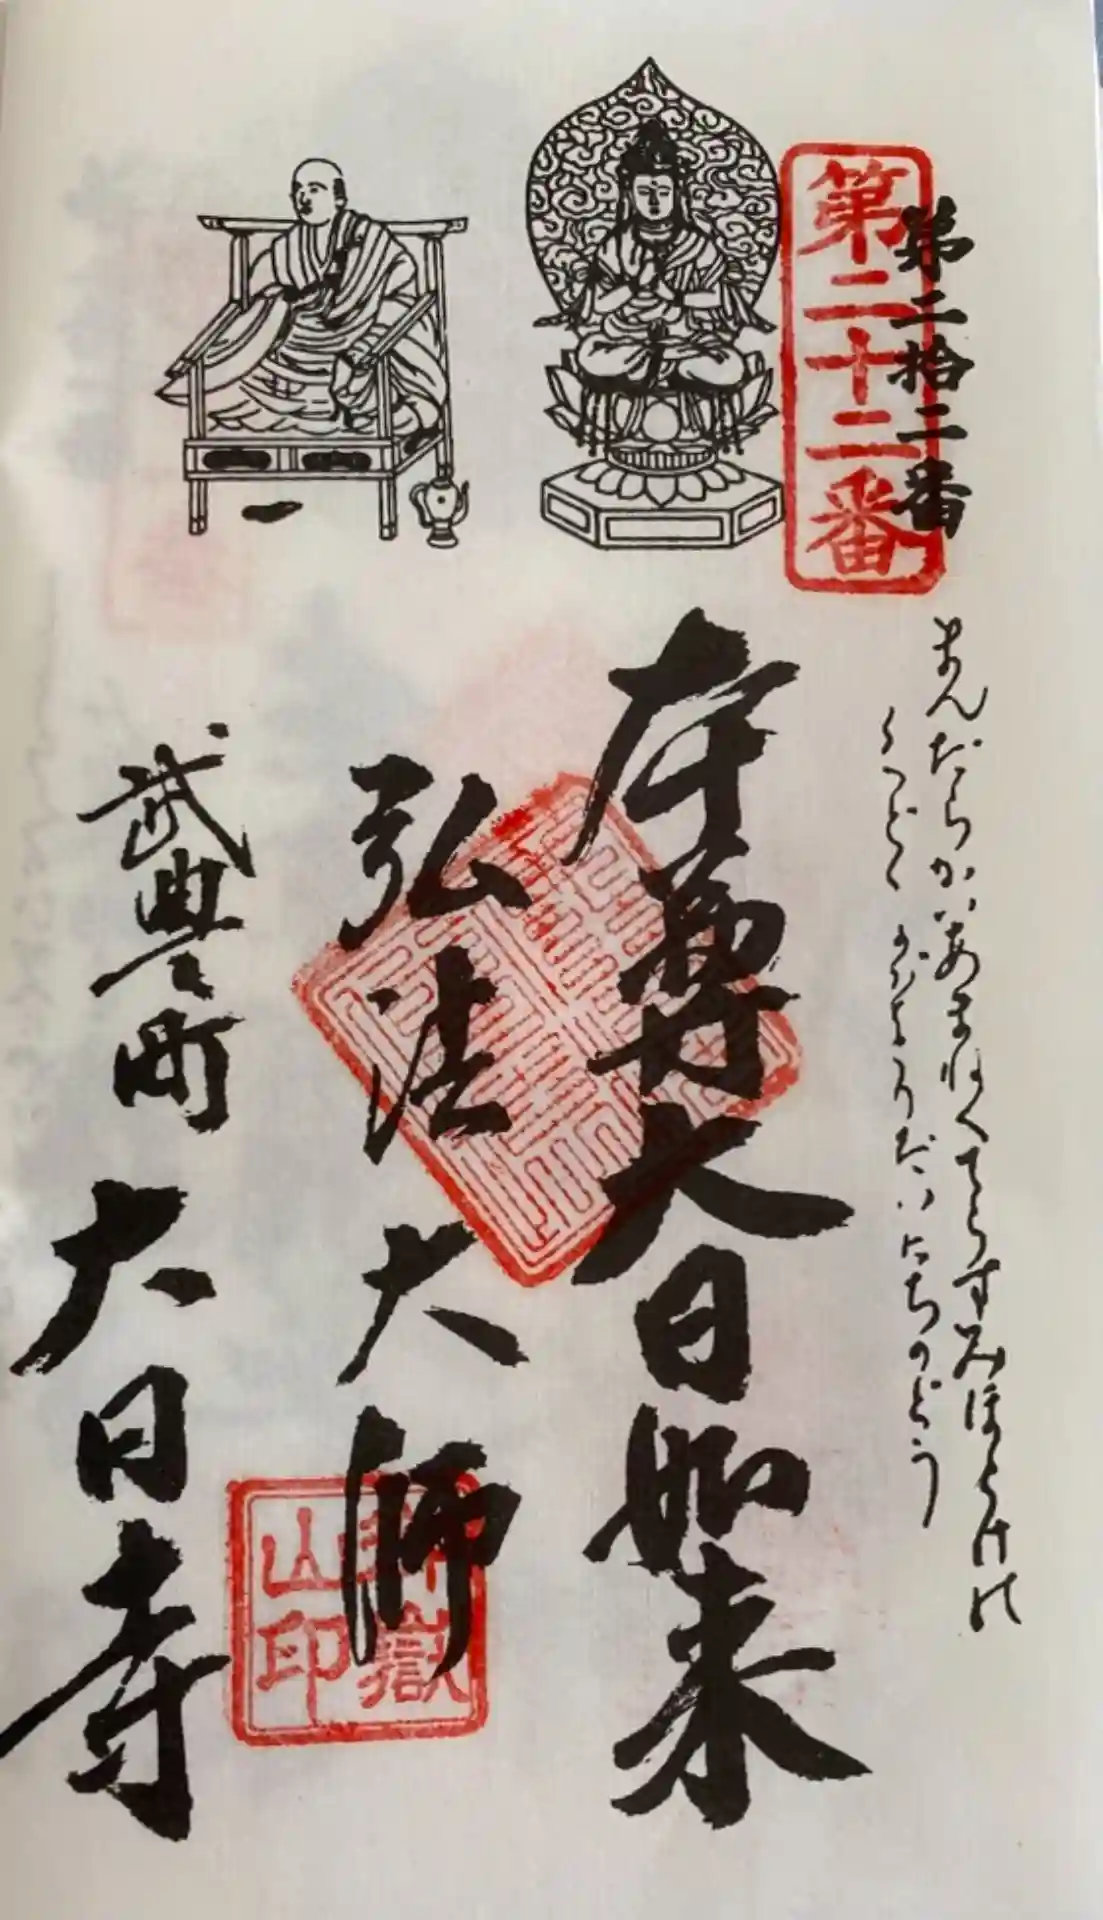 第二拾二番
第二十二番
まんだらがあまねくてらすみほとけの
くどくがちうだいにちのどう
本尊大日如来
弘法大師
武豊町 大日寺
嶽
山印